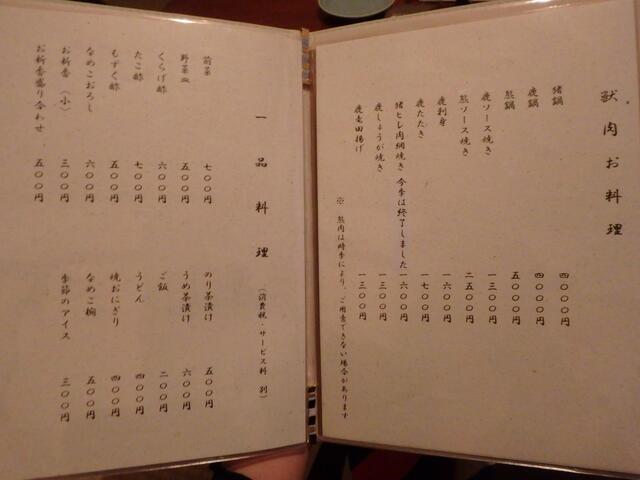 獣肉お料理
猪鍋 四〇〇〇円
鹿鍋 四〇〇〇円
熊鍋 五〇〇〇円
鹿ソース焼き 一三〇〇円
熊ソース焼き 二五〇〇円
鹿刺身 一六〇〇円
鹿たたき 一七〇〇円
猪ヒレ肉網焼き 今季は終了しました 一六〇〇円
鹿しょうが焼き 一三〇〇円
鹿竜田揚げ 一三〇〇円
※ 熊肉は時季により、ご用意できない場合があります
一品料理 (消費税・サービス料 別)
前菜 七〇〇円
野菜皿 五〇〇円
くらげ酢 六〇〇円
たこ酢 七〇〇円
もずく酢 五〇〇円
なめこおろし 六〇〇円
お新香 (小) 三〇〇円
お新香盛り合わせ 五〇〇円
のり茶漬け 五〇〇円
うめ茶漬け 六〇〇円
ご飯 二〇〇円
うどん 四〇〇円
焼おにぎり 四〇〇円
なめこ椀 五〇〇円
季節のアイス 三〇〇円